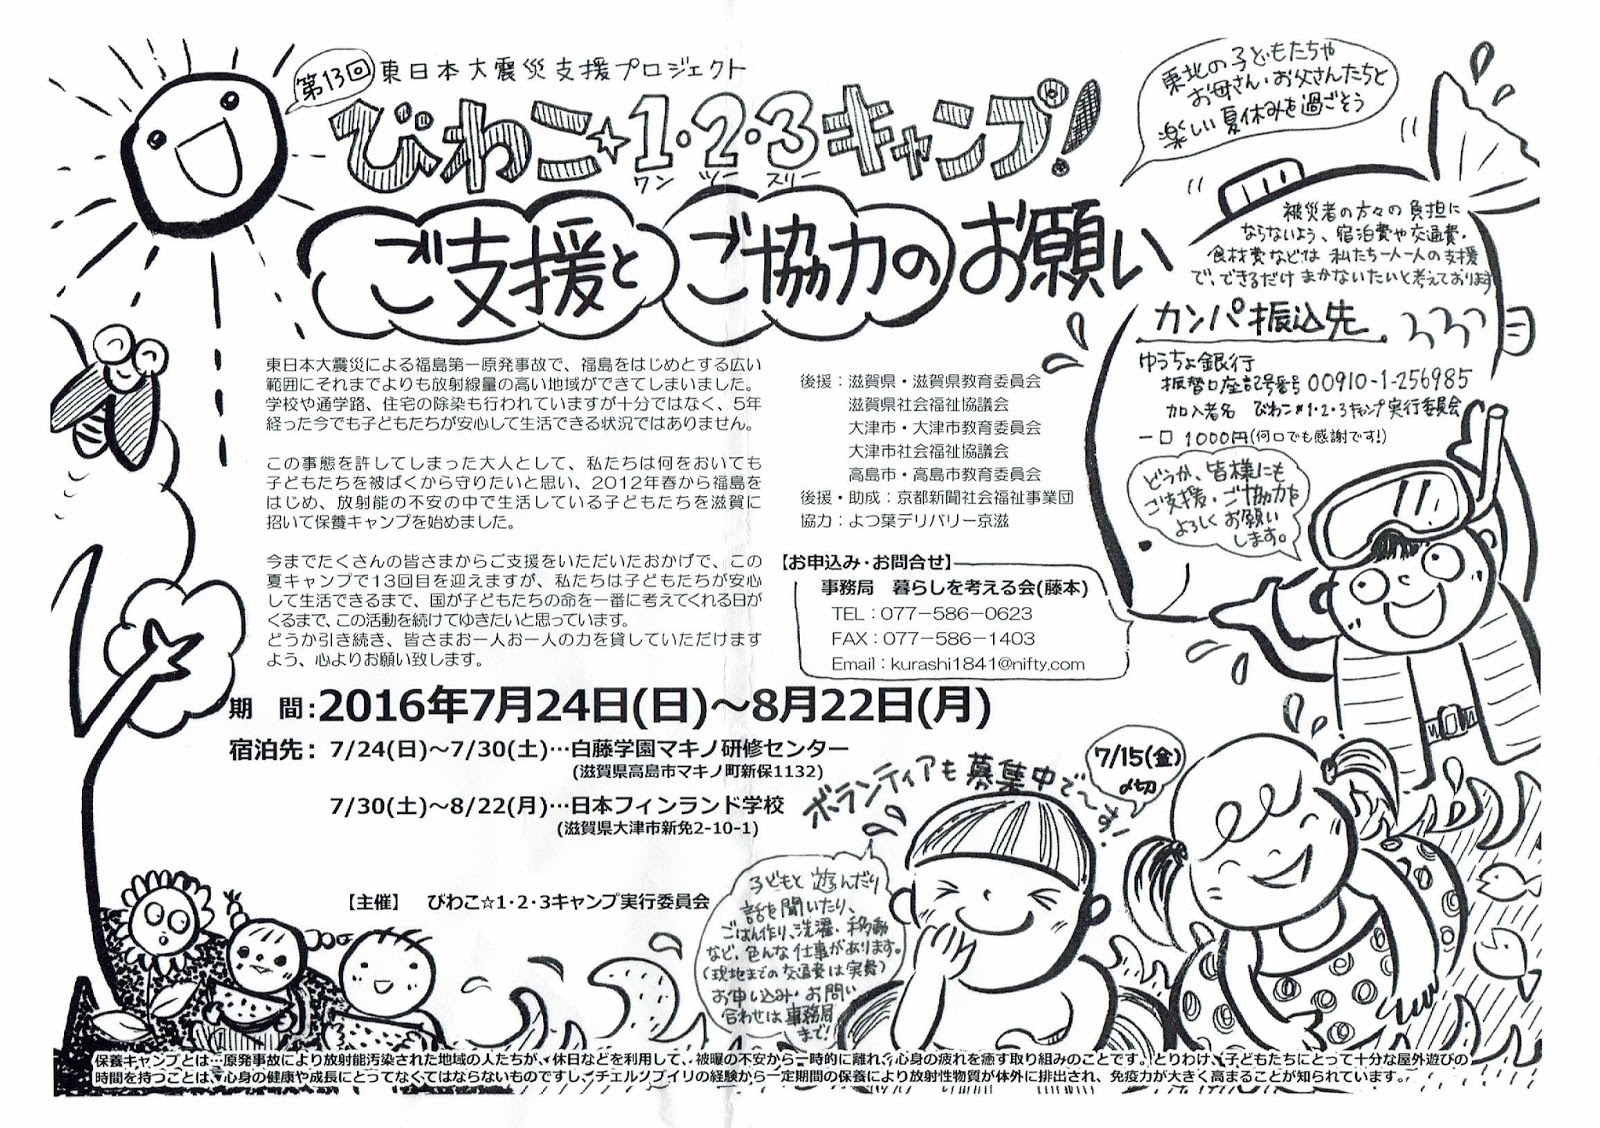 第13回
東日本大震災支援プロジェクト
びわこ☆1・2・3キャンプ!
ワン ツー スリー
ご支援とご協力のお願い
東北の子どもたちや
お母さん・お父さんたちと
楽しい夏休みを過ごそう
被災者の方々の負担に
ならないよう、宿泊費や交通費・
食材費などは私たち一人一人の支援
で、できるだけまかないたいと考えております
カンパ振込先
ゆうちょ銀行
振替口座記号番号 00910-1-256985
加入者名 びわこ☆1・2・3キャンプ実行委員会
一口 1000円(何口でも感謝です!)
どうか、皆様にも
ご支援・ご協力を
よろしくお願い
します。
東日本大震災による福島第一原発事故で、福島をはじめとする広い
範囲にそれまでよりも放射線量の高い地域ができてしまいました。
学校や通学路、住宅の除染も行われていますが十分ではなく、5年
経った今でも子どもたちが安心して生活できる状況ではありません。
この事態を許してしまった大人として、私たちは何をおいても
子どもたちを被ばくから守りたいと思い、2012年春から福島を
はじめ、放射能の不安の中で生活している子どもたちを滋賀に
招いて保養キャンプを始めました。
今までたくさんの皆さまからご支援をいただいたおかげで、この
夏キャンプで13回目を迎えますが、私たちは子どもたちが安心
して生活できるまで、国が子どもたちの命を一番に考えてくれる日が
くるまで、この活動を続けてゆきたいと思っています。
どうか引き続き、皆さまお一人お一人の力を貸していただけます
よう、心よりお願い致します。
後援：滋賀県・滋賀県教育委員会
滋賀県社会福祉協議会
大津市・大津市教育委員会
大津市社会福祉協議会
高島市・高島市教育委員会
後援・助成：京都新聞社会福祉事業団
協力：よつ葉デリバリー京滋
【お申込み・お問合せ】
事務局 暮らしを考える会(藤本)
TEL：077－586－0623
FAX：077－586－1403
Email：kurashi1841@nifty.com
期 間：2016年7月24日(日)～8月22日(月)
宿泊先：7/24(日)～7/30(土)…白藤学園マキノ研修センター
(滋賀県高島市マキノ町新保1132)
7/30(土)～8/22(月)…日本フィンランド学校
(滋賀県大津市新免2-10-1)
【主催】 びわこ☆1・2・3キャンプ実行委員会
ボランティアも募集中で～す!
7/15(金)
〆切
子どもと遊んだり
話を聞いたり、
ごはん作り、洗濯、移動
など、色んな仕事があります。
(現地までの交通費は実費)
お申し込み・お問い
合わせは事務局
まで!
保養キャンプとは…原発事故により放射能汚染された地域の人たちが、休日などを利用して、被曝の不安から一時的に離れ、心身の疲れを癒す取り組みのことです。とりわけ、子どもたちにとって十分な屋外遊びの
時間を持つことは、心身の健康や成長にとってなくてはならないものですし、チェルノブイリの経験から一定期間の保養により放射性物質が体外に排出され、免疫力が大きく高まることが知られています。